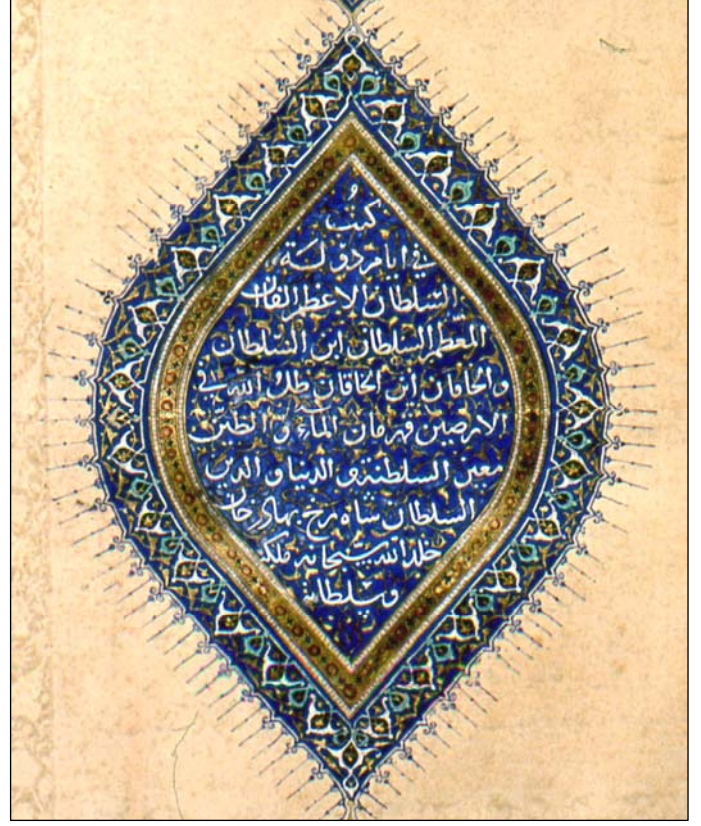 كتب
في ايام دولة
السلطان الاعظم القاان
المعظم السلطان ابن السلطان
والخاقان ابن الخاقان ظل الله في
الارضين قهرمان الماء و الطين
معين السلطنة و الدنيا و الدين
السلطان شاه رخ بهادر خان
خلد الله سبحانه ملكه
وسلطانه